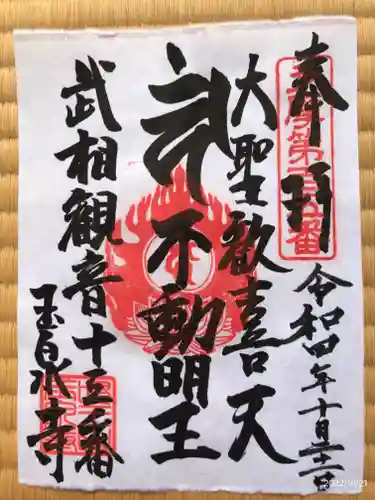 奉拝
令和四年十月二十一日
大聖歓喜天
不動明王
武相観音十三番
玉泉寺
2022/10/21